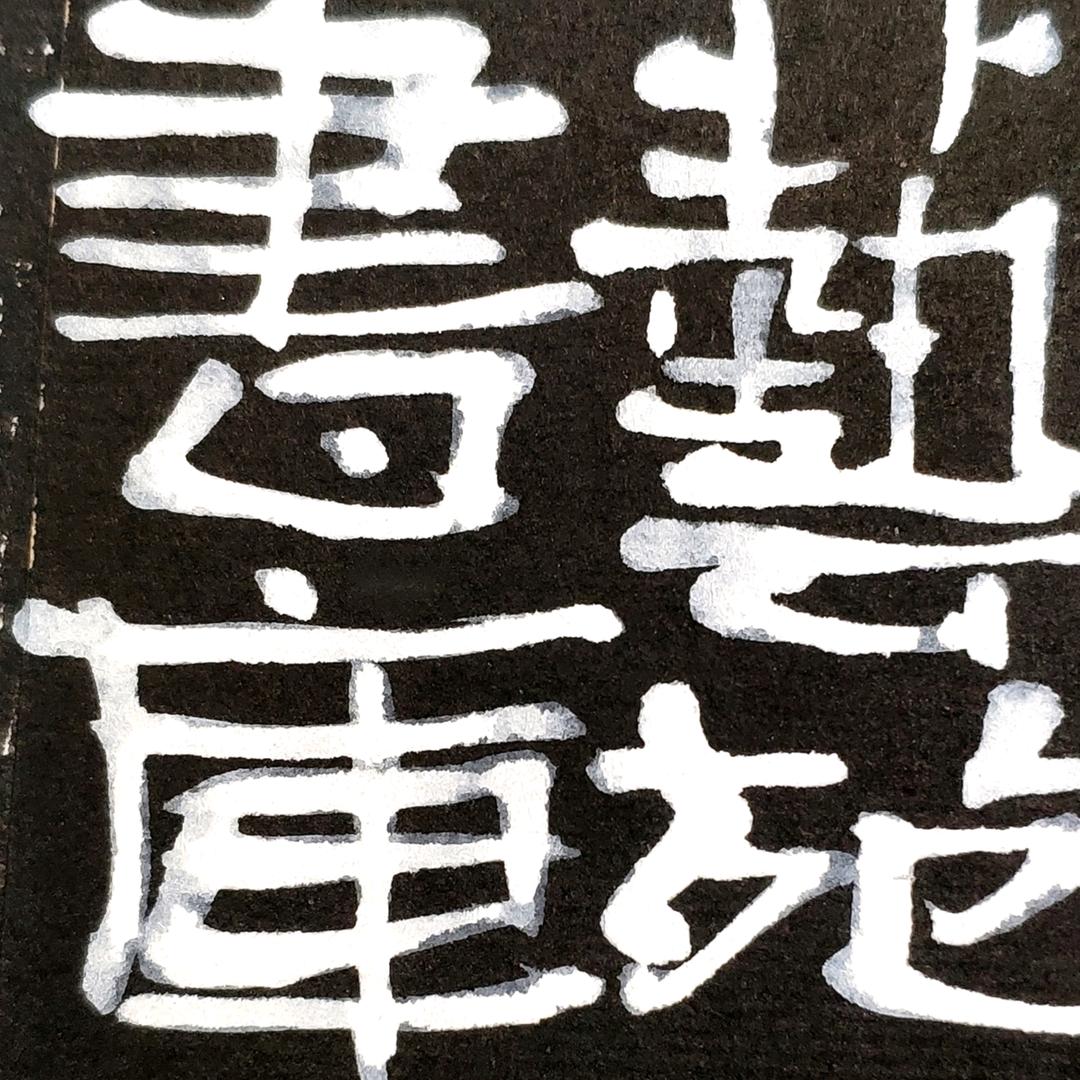 藝施
書庫